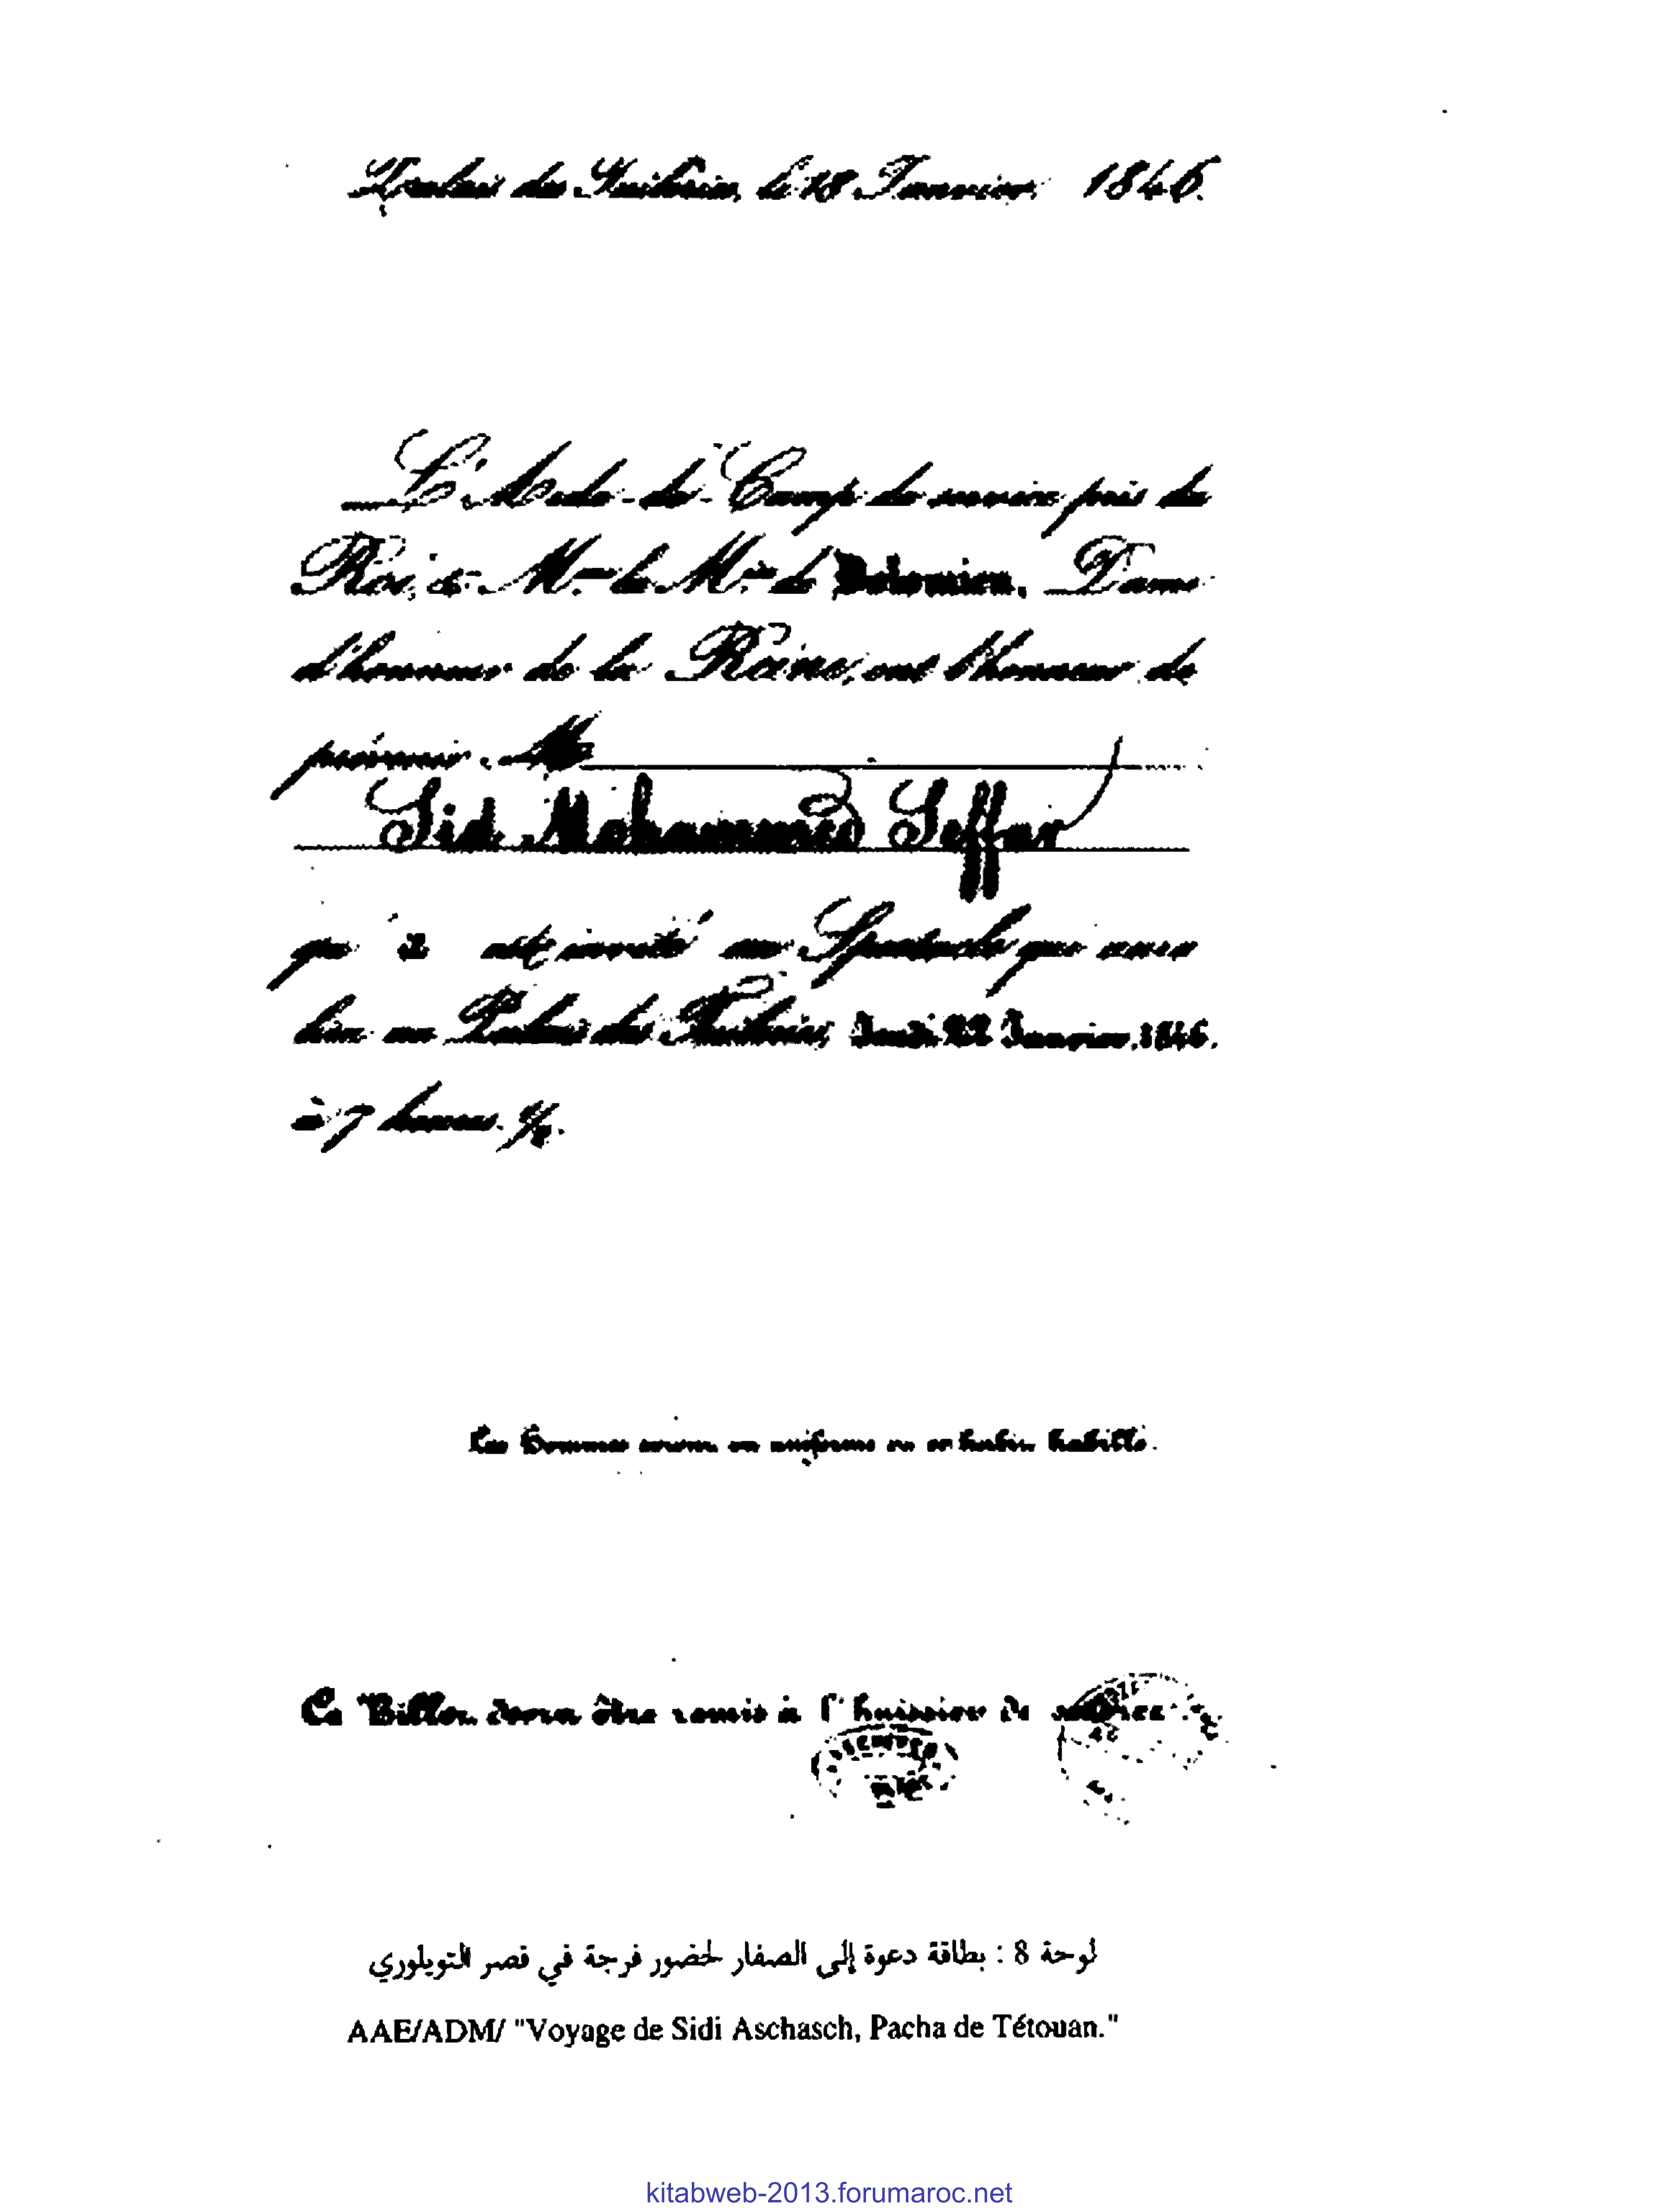 Palais des Tuileries, le 18 Janvier 1846.
L'Aide-de-Camp de service près du
Roi, & Mme la Mise de Dolomieu, Dame
d'honneur de la Reine, ont l'honneur de
prévenir M
Sid Mohammed Seffar
qu'il est invité au Spectacle qui aura
lieu au Palais des Tuileries, Jeudi 22 Janvier, 1846.
à 7 heures ½.
Les hommes seront en uniforme ou en habit habillé.
Ce Billet devra être remis à l'huissier de
لوحة 8 : بطاقة دعوة إلى الصفار لحضور فرجة في قصر التويلوري
AAE/ADM/ "Voyage de Sidi Aschasch, Pacha de Tétouan."
kitabweb-2013.forumaroc.net